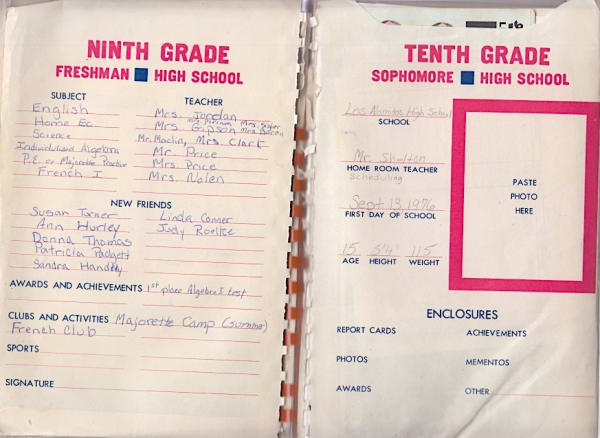 NINTH GRADE
FRESHMAN HIGH SCHOOL
SUBJECT TEACHER
English Mrs. Jordan
Home Ec Mrs. Gipson
Science Mr. Maclin, Mrs. Clark
Individualized Algebra Mr. Price
P.E. or Majorette Practice Mrs. Price
French I Mrs. Nolen
NEW FRIENDS
Susan Turner Linda Conner
Ann Hurley Judy Roelke
Donna Thomas
Patricia Padgett
Sandra Handley
AWARDS AND ACHIEVEMENTS 1st place Algebra I test
CLUBS AND ACTIVITIES Majorette Camp (summer)
French Club
SPORTS
SIGNATURE
TENTH GRADE
SOPHOMORE HIGH SCHOOL
Los Alamitos High School
SCHOOL
Mr. Shelton
HOME ROOM TEACHER
scheduling
Sept. 13, 1976
FIRST DAY OF SCHOOL
15 5'4" 115
AGE HEIGHT WEIGHT
PASTE
PHOTO
HERE
ENCLOSURES
REPORT CARDS ACHIEVEMENTS
PHOTOS MEMENTOS
AWARDS OTHER